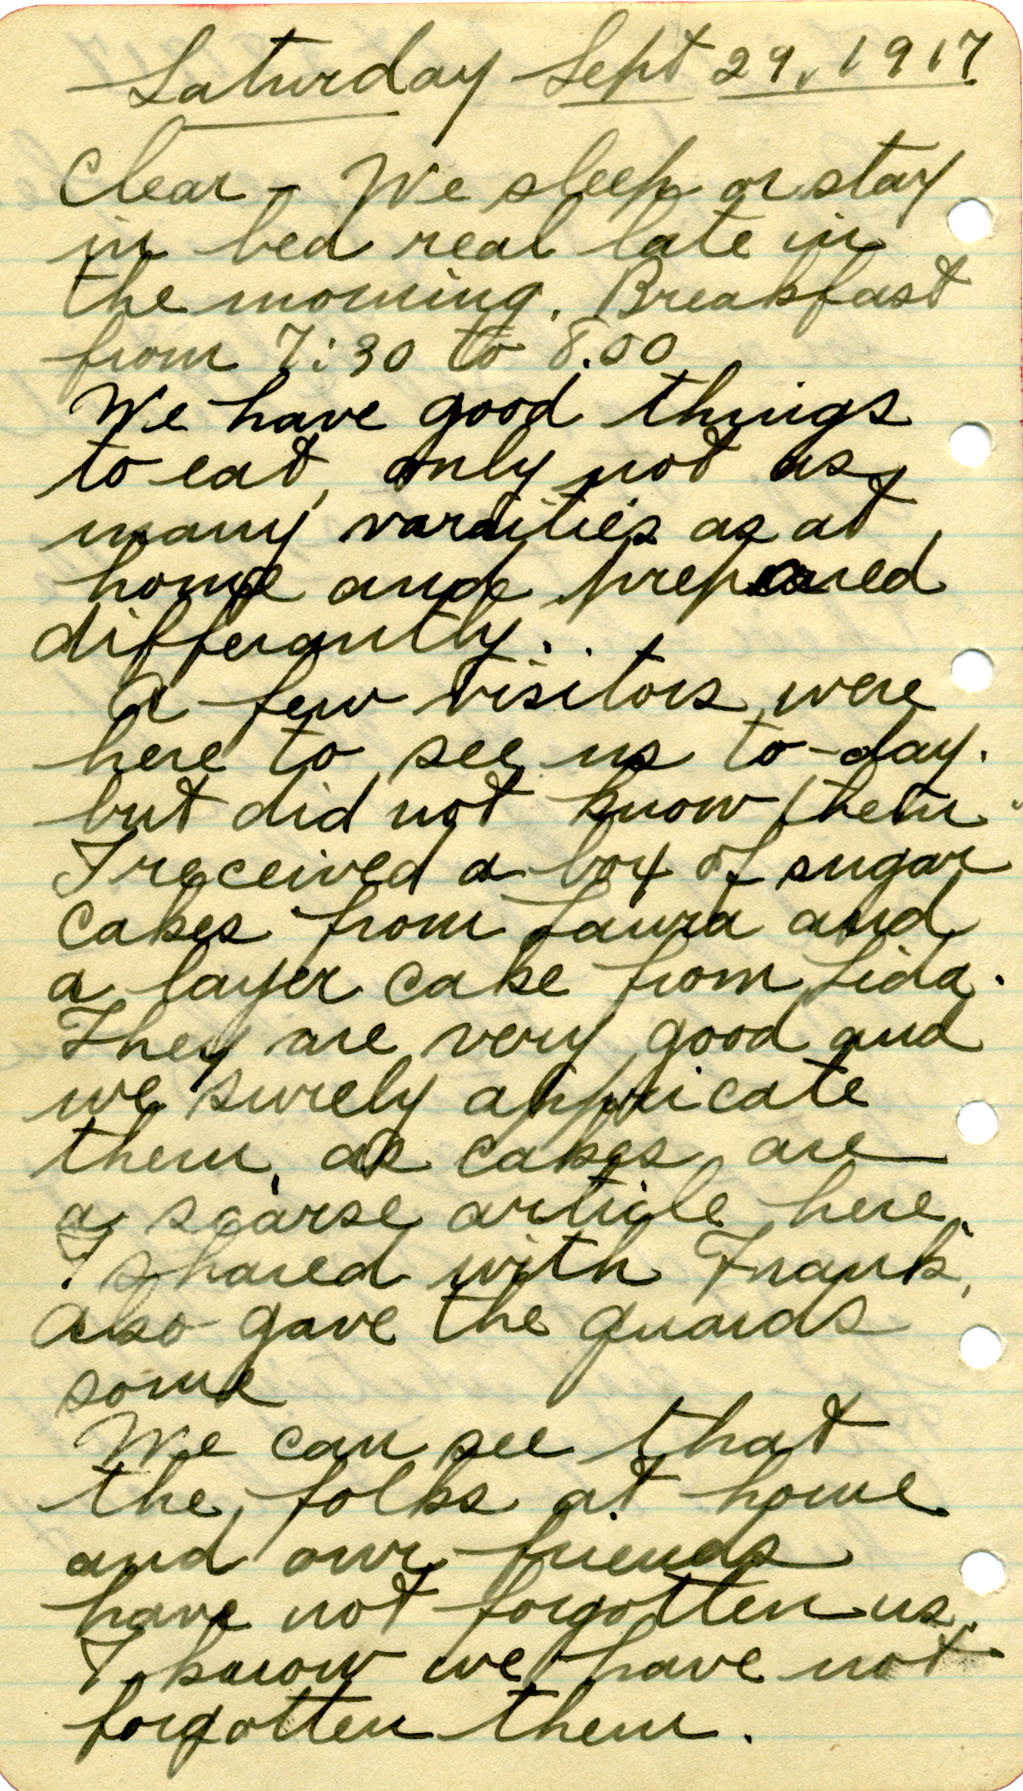 Saturday Sept 29, 1917
Clear - We sleep or stay
in bed real late in
the morning. Breakfast
from 7:30 to 8.00
We have good things
to eat, only not as
many varaities as at
home and prepared
differantly.
A few visitors were
here to see us to-day.
but did not know them
I received a box of sugar
cakes from Laura and
a layer cake from Lida.
They are very good and
we surely appricate
them, as cakes are
a scarse article here.
I shared with Frank,
also gave the guards
some
We can see that
the folks at home
and our friends
have not forgotten us.
I know we have not
forgotten them.